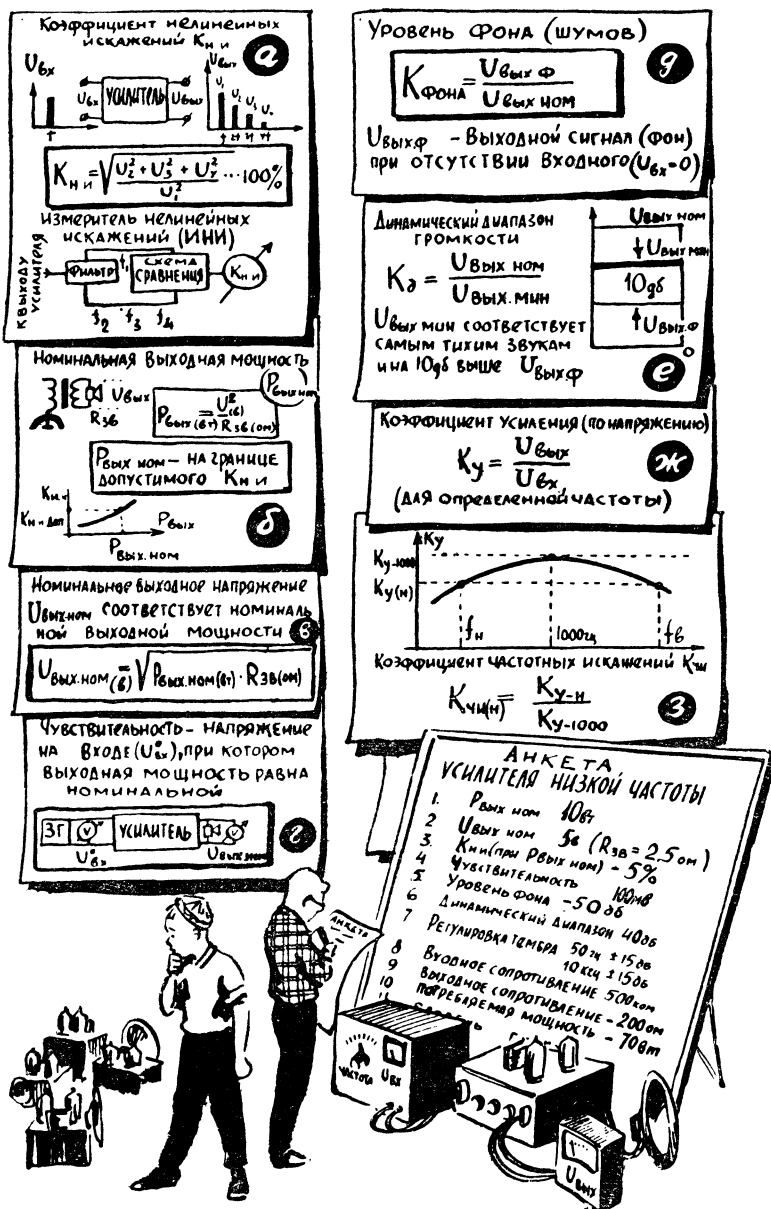 Коэффициент нелинейных
искажений Kни
а
Uвх
Uвых
Uвх
УСИЛИТЕЛЬ
Uвых
U₁
U₂
U₃
f
f₁ f₂ f₃ f₄
Kни = √(U₂² + U₃² + U₄² / U₁²) ... 100%
ИЗМЕРИТЕЛЬ НЕЛИНЕЙНЫХ
ИСКАЖЕНИЙ (ИНИ)
К ВЫХОДУ
УСИЛИТЕЛЯ
ФИЛЬТР
f₁
СХЕМА
СРАВНЕНИЯ
Kни
f₂ f₃ f₄
НОМИНАЛЬНАЯ ВЫХОДНАЯ МОЩНОСТЬ
Pвых.ном
Uвых
Rзв
Pвых(вт) = U²(в) / Rзв(ом)
Pвых ном — НА ГРАНИЦЕ
ДОПУСТИМОГО Kни
Kни
Kни доп
Pвых
Pвых.ном
б
НОМИНАЛЬНОЕ ВЫХОДНОЕ НАПРЯЖЕНИЕ
Uвых.ном СООТВЕТСТВУЕТ НОМИНАЛЬ
НОЙ ВЫХОДНОЙ МОЩНОСТИ в
Uвых.ном(в) = √Pвых.ном(вт) · Rзв(ом)
ЧУВСТВИТЕЛЬНОСТЬ – НАПРЯЖЕНИЕ
НА ВХОДЕ (U°вх), ПРИ КОТОРОМ
ВЫХОДНАЯ МОЩНОСТЬ РАВНА
НОМИНАЛЬНОЙ
ЗГ V УСИЛИТЕЛЬ V
U°вх Uвых.ном
г
УРОВЕНЬ ФОНА (ШУМОВ)
д
Kфона = Uвых ф / Uвых ном
Uвых.ф – ВЫХОДНОЙ СИГНАЛ (ФОН)
ПРИ ОТСУТСТВИИ ВХОДНОГО (Uвх=0)
ДИНАМИЧЕСКИЙ ДИАПАЗОН
ГРОМКОСТИ
Kд = Uвых ном / Uвых.мин
Uвых мин СООТВЕТСТВУЕТ
САМЫМ ТИХИМ ЗВУКАМ
И НА 10дб ВЫШЕ Uвых ф
Uвых ном
Uвых мин
10дб
Uвых.ф
0
е
КОЭФФИЦИЕНТ УСИЛЕНИЯ (ПО НАПРЯЖЕНИЮ)
Kу = Uвых / Uвх
ж
(ДЛЯ ОПРЕДЕЛЕННОЙ ЧАСТОТЫ)
Kу
Kу-1000
Kу(н)
fн 1000гц fв
КОЭФФИЦИЕНТ ЧАСТОТНЫХ ИСКАЖЕНИЙ Kчи
Kчи(н) = Kу-н / Kу-1000
з
АНКЕТА
УСИЛИТЕЛЯ НИЗКОЙ ЧАСТОТЫ
1. Pвых ном 10вт
2 Uвых ном 5в (Rзв = 2,5 ом)
3. Kни (при Pвых ном) – 5%
4 ЧУВСТВИТЕЛЬНОСТЬ 100мв
5 УРОВЕНЬ ФОНА –50дб
6 ДИНАМИЧЕСКИЙ ДИАПАЗОН 40дб
7 РЕГУЛИРОВКА ТЕМБРА 50гц ±15дв
10 кгц ±15дб
8 ВХОДНОЕ СОПРОТИВЛЕНИЕ 500ком
9 ВЫХОДНОЕ СОПРОТИВЛЕНИЕ – 200ом
10 ПОТРЕБЛЯЕМАЯ МОЩНОСТЬ – 70вт
АНКЕТА
ЧАСТОТА
Uвх
Uвых